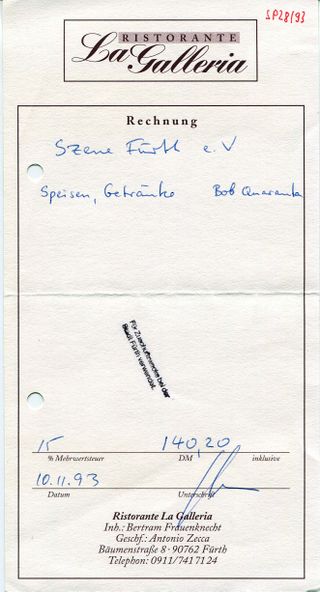 SP28/93
RISTORANTE
La Galleria
Rechnung
Szene Fürth e.V
Speisen, Getränke Bob Quaranta
Für Zuschußzwecke bei der
Stadt Fürth verwendet.
15 140,20
% Mehrwertsteuer DM inklusive
10.11.93
Datum Unterschrift
Ristorante La Galleria
Inh.: Bertram Frauenknecht
Geschf.: Antonio Zecca
Bäumenstraße 8 · 90762 Fürth
Telephon: 0911/7417124